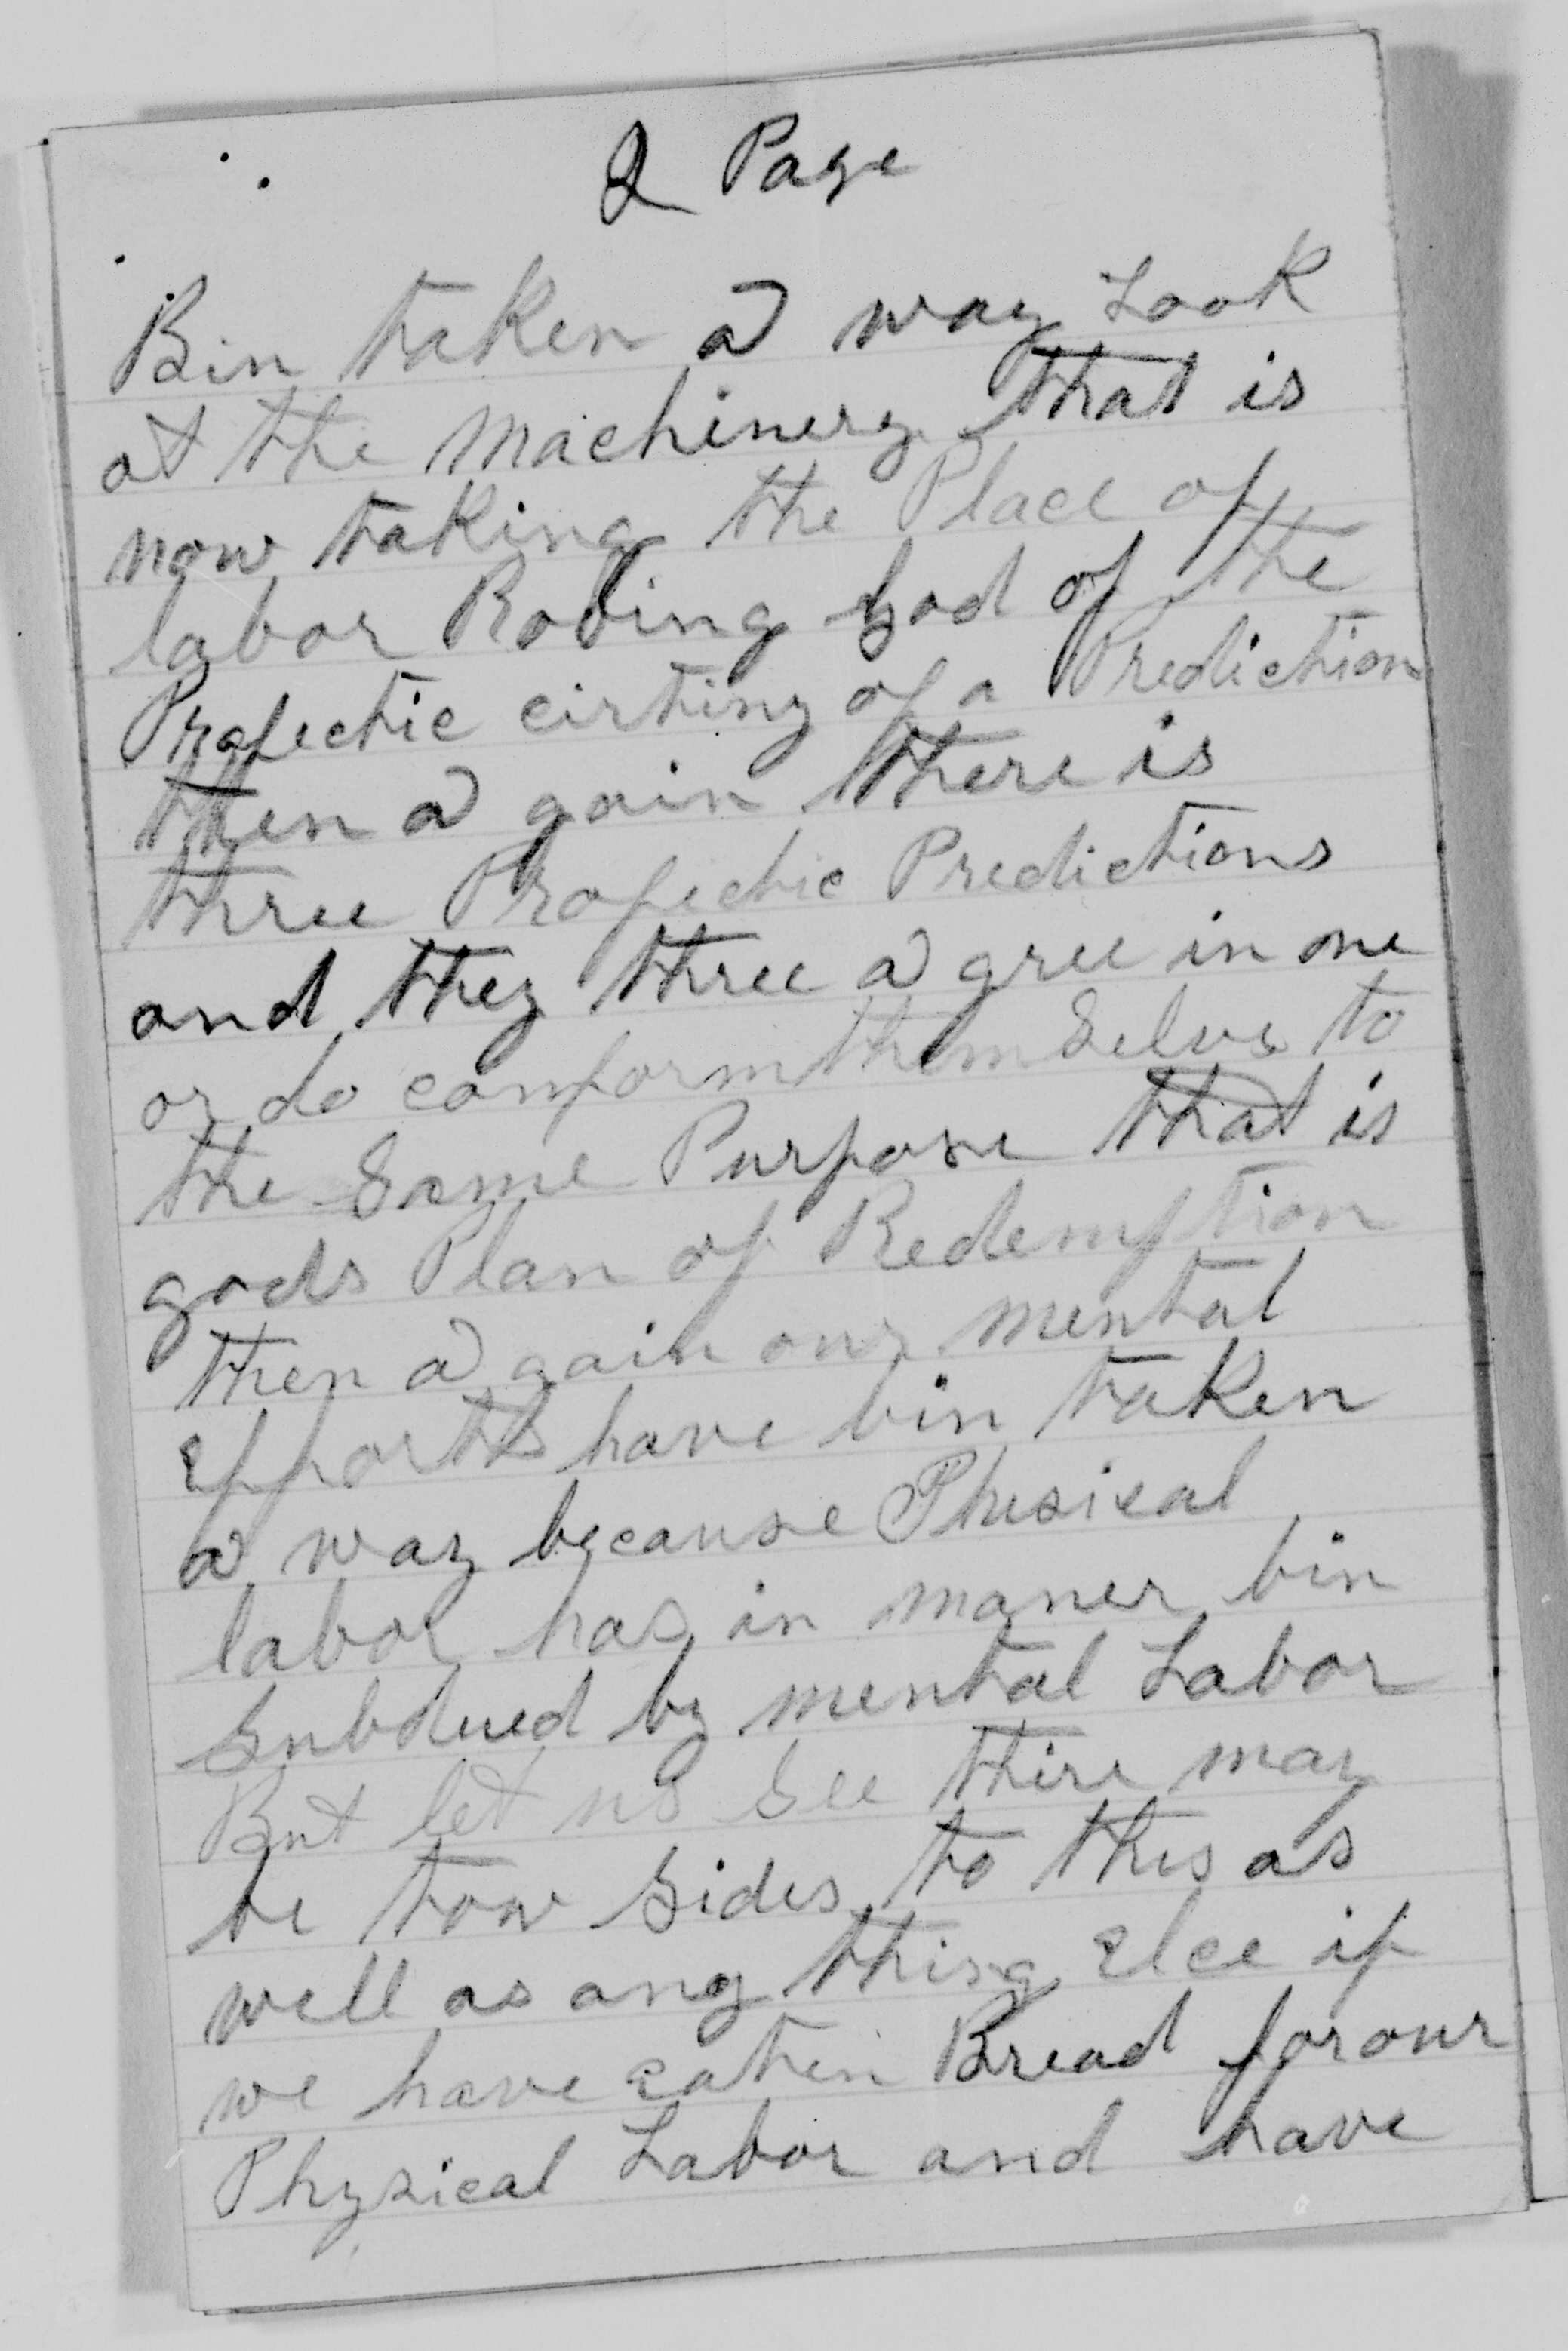 2 Page
Bin taken a way Look
at the machinery that is
now taking the Place of
labor Robing God of the
Profectic cirtiny of a Prediction
then a gain there is
three Profectic Predictions
and they three a gree in one
or do conform them Selvs to
the Same Purpose that is
gods Plan of Redemption
then a gain our mental
Epforts have bin taken
a way because Phesical
labor has in maner bin
Subdued by mental Labor
But let us See thire may
be tow Sides to this as
well as any thing Elce if
we have eaten Bread for our
Physical Labor and have